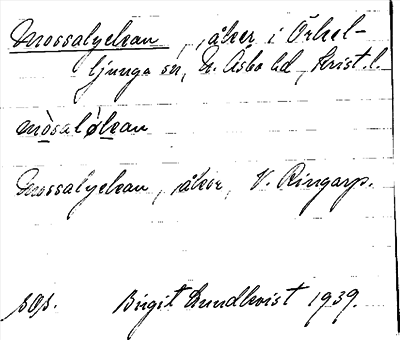 Mossalyckan, åker i Örkel-
ljunga sn, N. Åsbo hd, Krist. l.
mòsalỳkan
Mossalyckan, åker, V. Ringarp.
sop. Birgit Lundkvist 1939.